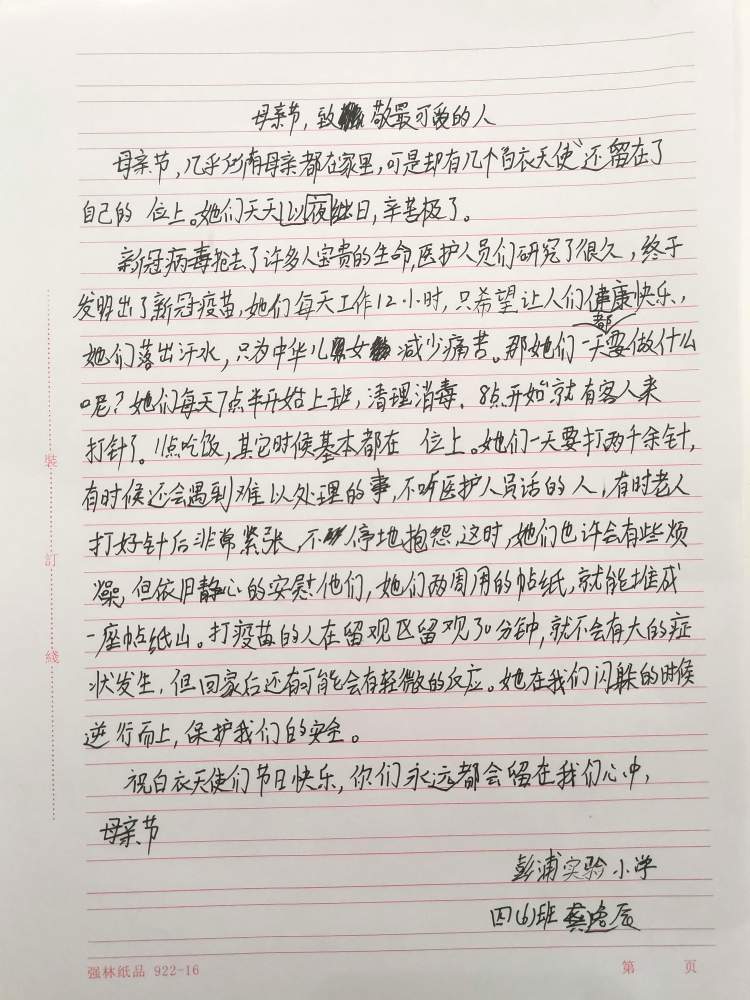 母亲节，致敬最可爱的人
母亲节，几乎所有母亲都在家里，可是却有几个"白衣天使"还留在了
自己的 位上。她们天天以夜继日，辛苦极了。
新冠病毒抢去了许多人宝贵的生命，医护人员们研究了很久，终于
发明出了新冠疫苗，她们每天工作12小时，只希望让人们健康快乐，
她们落出汗水，只为中华儿女减少痛苦。那她们一天都要做什么
呢？她们每天7点半开始上班，清理消毒，8点开始就有客人来
打针了。11点吃饭，其它时候基本都在 位上。她们一天要打两千余针，
有时候还会遇到难以处理的事，不听医护人员话的人，有时老人
打好针后非常紧张，不停地抱怨，这时，她们也许会有些烦
燥，但依旧静心的安慰他们，她们两周用的帖纸，就能堆成
一座帖纸山。打疫苗的人在留观区留观30分钟，就不会有大的症
状发生，但回家后还有可能会有轻微的反应。她在我们闪躲的时候
逆行而上，保护我们的安全。
祝白衣天使们节日快乐，你们永远都会留在我们心中，
母亲节
彭浦实验小学
四(6)班
装
订
线
强林纸品 922-16
第 页